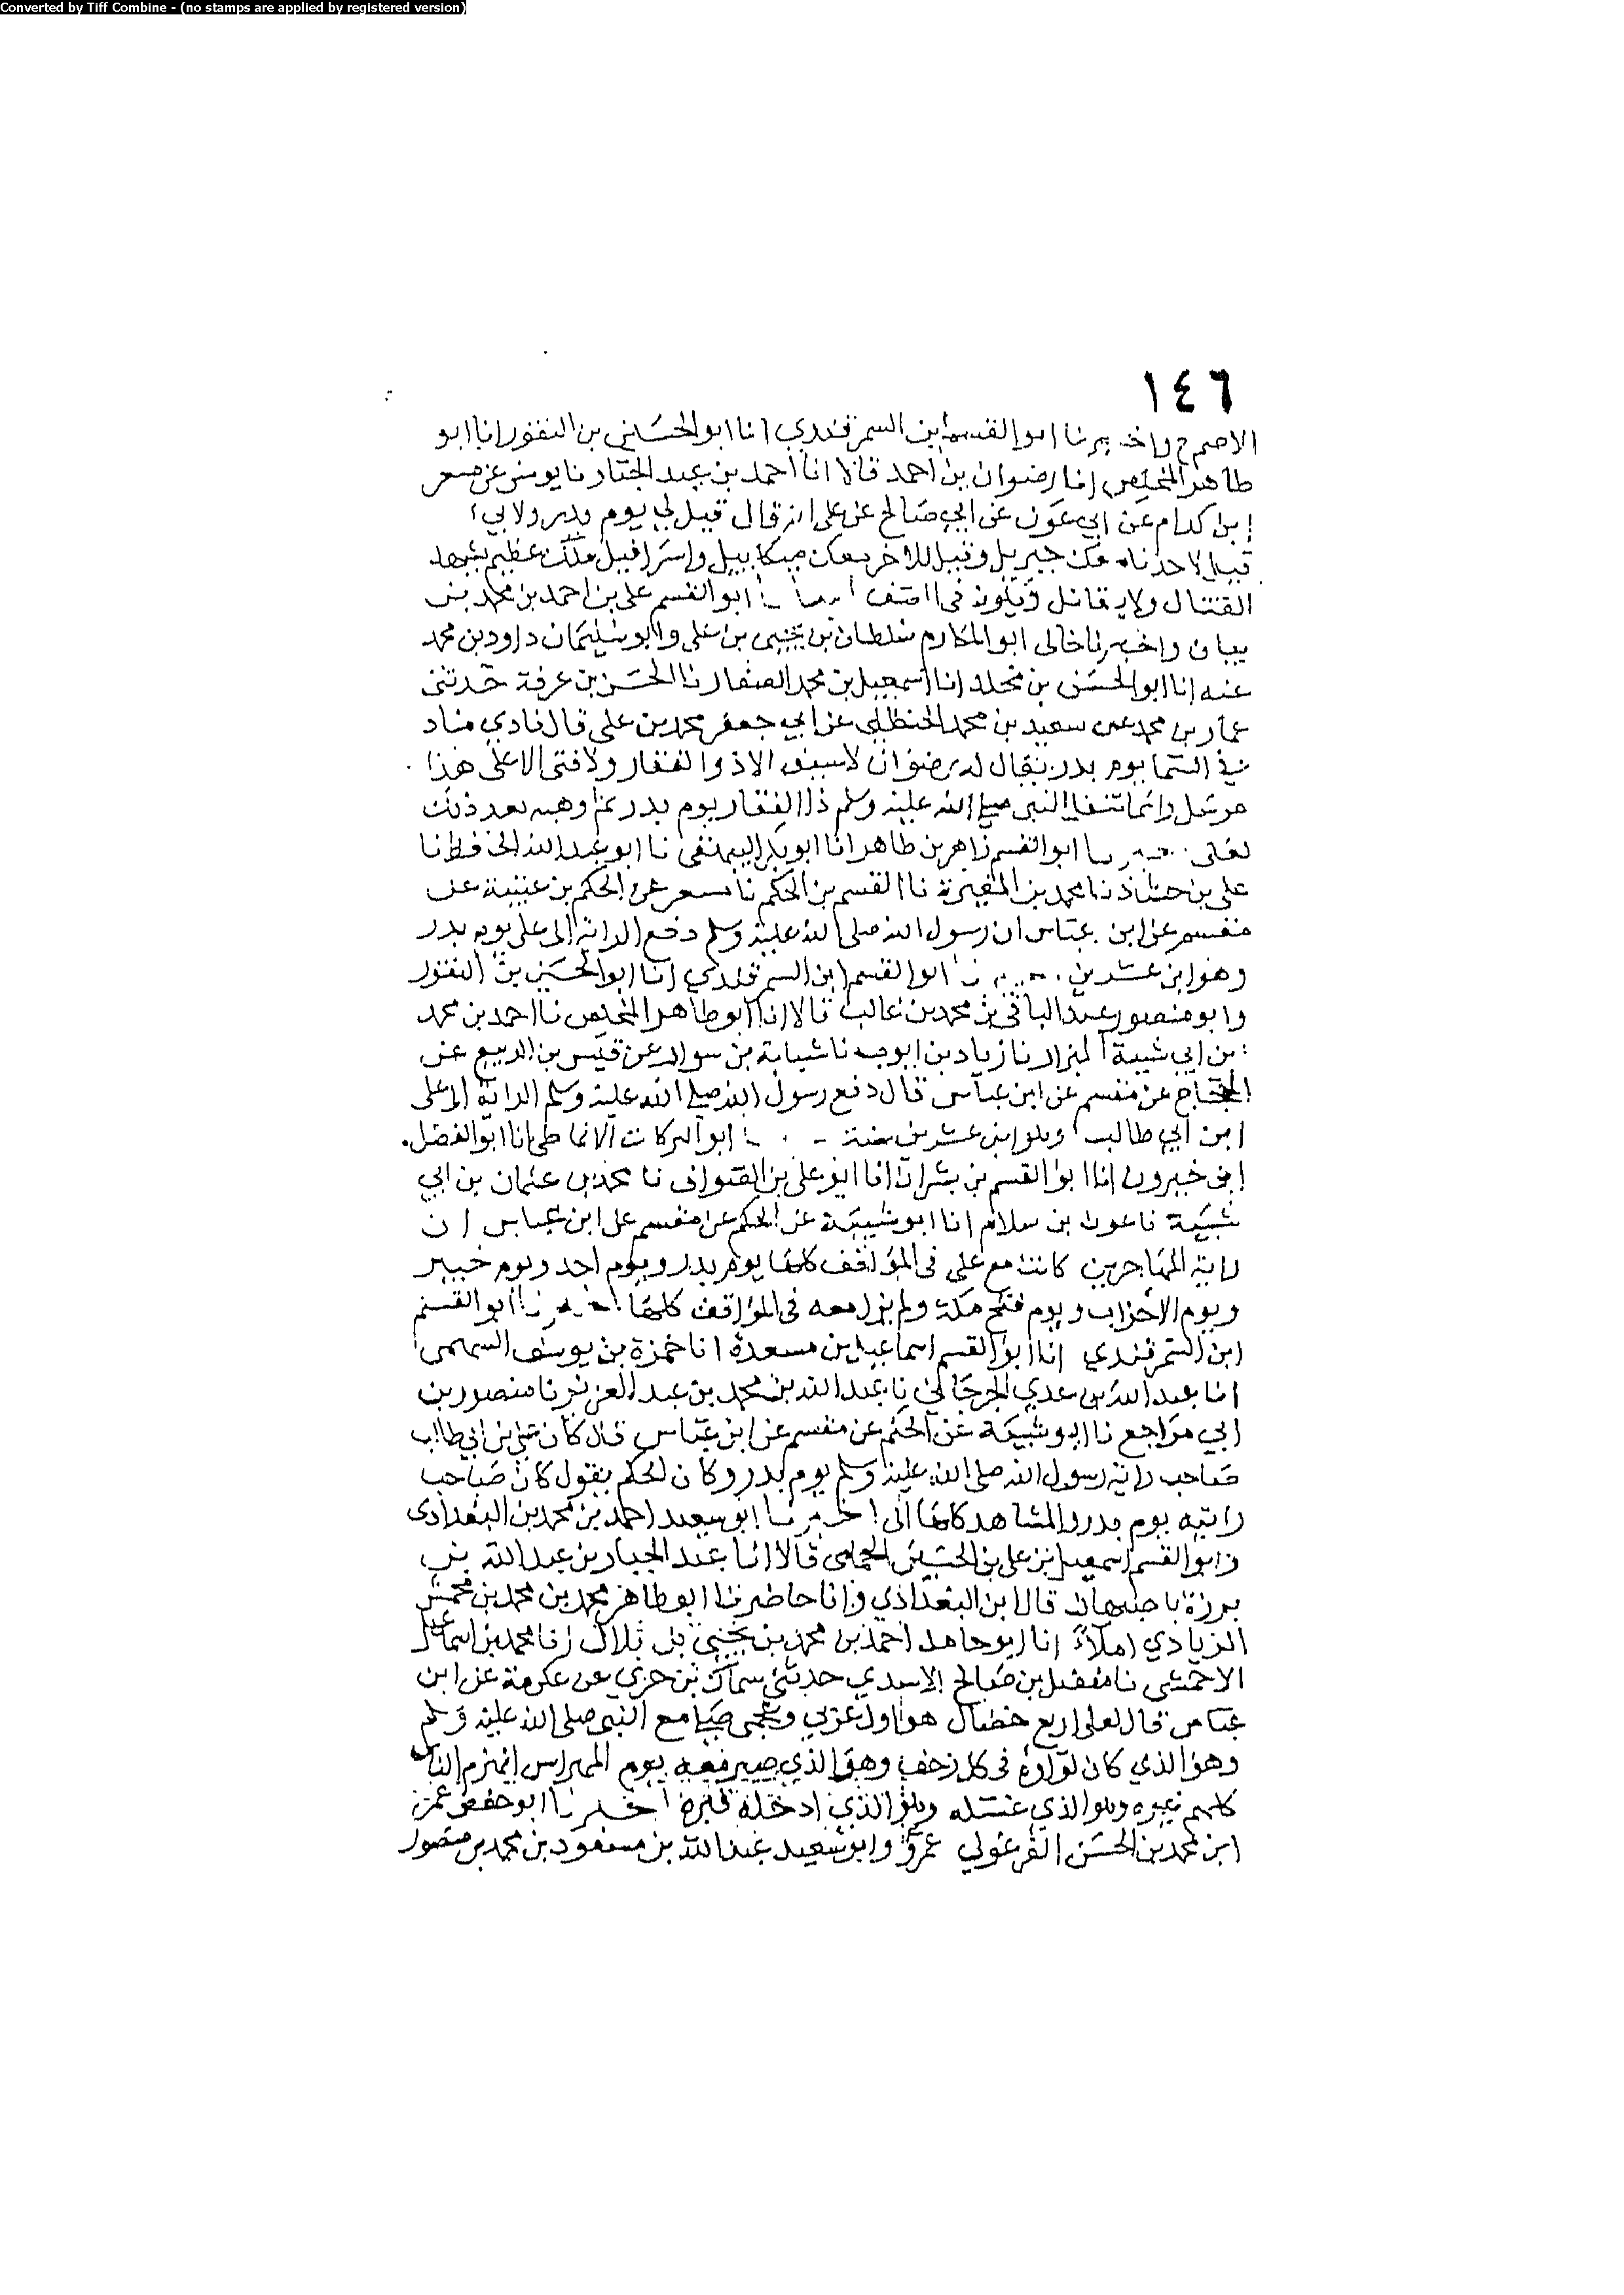 Converted by Tiff Combine - (no stamps are applied by registered version)
١٤٦
الاصم ح واخبرنا ابو القسم ابن السمرقندي انا ابو الحسين بن النقور انا ابو
طاهر المخلص انا رضوان بن احمد قالا انا احمد بن عبد الجبار نا يونس عن مسعر
ابن كدام عن ابي عون عن ابي صالح عن علي انه قال قيل لي يوم بدر ولابي
قيل لاحدنا معك جبريل وقيل للاخر معك ميكاييل واسرافيل ملك عظيم يشهد
القتال ولا يقاتل ويكون في الصف ابو القسم علي بن احمد بن محمد بن
بيان واخبرنا خالي ابو المكارم سلطان بن يحيى بن علي وابو سليمان داود بن محمد
عنه انا ابو الحسن بن مخلد انا اسمعيل بن محمد الصفار نا الحسن بن عرفة حدثني
عمار بن محمد عن سعيد بن محمد الحنظلي عن ابي جعفر محمد بن علي قال نادي مناد
في السما يوم بدر يقال له رضوان لا سيف الا ذو الفقار ولا فتى الا علي هذا
مرسل وانما تنفل النبي صلى الله عليه وسلم ذا الفقار يوم بدر ثم وهبه بعد ذلك
لعلي ابو القسم زاهر بن طاهر انا ابو بكر البيهقي نا ابو عبد الله الحافظ انا
علي بن حمشاذ نا محمد بن المغيرة نا القسم بن الحكم نا مسعر عن الحكم بن عتيبة عن
مقسم عن ابن عباس ان رسول الله صلى الله عليه وسلم دفع الراية الى علي يوم بدر
وهو ابن عشرين ابو القسم ابن السمرقندي انا ابو الحسين بن النقور
وابو منصور عبد الباقي بن محمد بن غالب قالا انا ابو طاهر المخلص نا احمد بن محمد
بن ابي شيبة البزار نا زياد بن ايوب نا شبابة بن سوار عن قيس بن الربيع عن
الحجاج عن مقسم عن ابن عباس قال دفع رسول الله صلى الله عليه وسلم الراية الى علي
ابن ابي طالب وهو ابن عشرين سنة ابو البركات الانماطي انا ابو الفضل
ابن خيرون انا ابو القسم بن بشران انا ابو علي بن الصواف نا محمد بن عثمان بن ابي
شيبة نا عون بن سلام انا ابو شيبة عن الحكم عن مقسم عن ابن عباس ان
راية المهاجرين كانت مع علي في المواقف كلها يوم بدر ويوم احد ويوم خيبر
ويوم الاحزاب ويوم فتح مكة ولم يزل معه في المواقف كلها اخبرنا ابو القسم
ابن السمرقندي انا ابو القسم اسماعيل بن مسعدة انا حمزة بن يوسف السهمي
انا عبد الله بن عدي الجرجاني نا عبد الله بن محمد بن عبد العزيز نا منصور بن
ابي مزاحم نا ابو شيبة عن الحكم عن مقسم عن ابن عباس قال كان علي بن ابي طالب
صاحب راية رسول الله صلى الله عليه وسلم يوم بدر وكان الحكم يقول كان صاحب
رايته يوم بدر والمشاهد كلها اخبرنا ابو سعد احمد بن محمد بن البغدادي
وابو القسم اسمعيل بن علي بن الحسين الحمامي قالا انا عبد الجبار بن عبد الله بن
برزة باصبهان قال ابن البغدادي وانا حاضر نا ابو طاهر محمد بن محمد بن محمش
الزيادي املاءً انا ابو حامد احمد بن محمد بن يحيى بن بلال نا محمد بن اسماعيل
الاحمسي نا مفضل بن صالح الاسدي حدثني سماك بن حرب عن عكرمة عن ابن
عباس قال لعلي اربع خصال هو اول عربي وعجمي صلى مع النبي صلى الله عليه وسلم
وهو الذي كان لواوه في كل زحف وهو الذي صبر معه يوم المهراس انهزم الناس
كلهم غيره وهو الذي غسله وهو الذي ادخله قبره اخبرنا ابو حفص عمر
ابن محمد بن الحسن الفرغولي بمرو وابو سعيد عبد الله بن مسعود بن محمد بن منصور